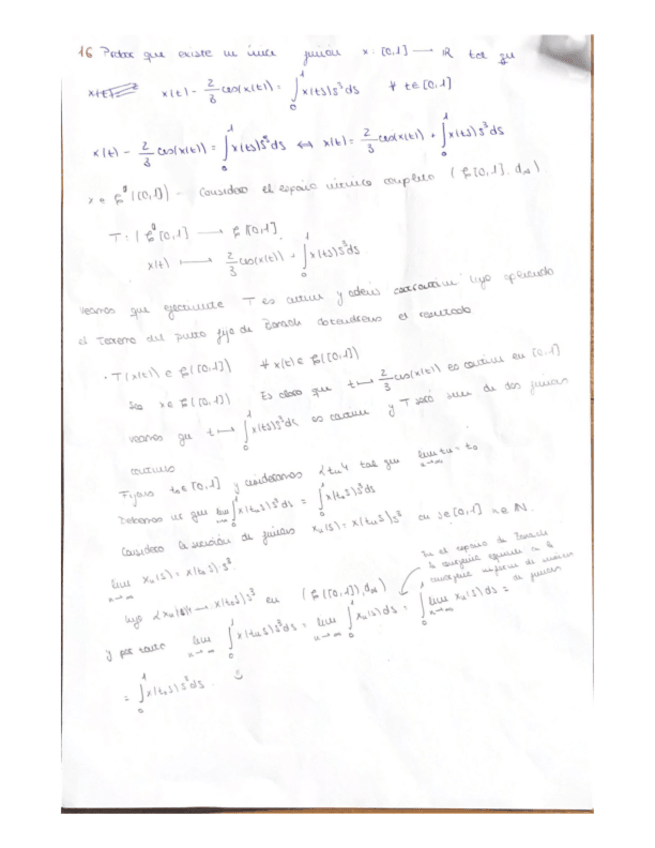 16 Probar que existe una única función x: [0,1] → ℝ tal que
x(t) - 2/3 cos(x(t)) = ∫₀¹ x(ts)s³ds ∀ t∈[0,1]
x(t) - 2/3 cos(x(t)) = ∫₀¹ x(ts)s³ds ⟺ x(t) = 2/3 cos(x(t)) + ∫₀¹ x(ts)s³ds
Considero el espacio métrico completo (C[0,1], d∞).
T: C[0,1] → C[0,1]
x(t) ⟼ 2/3 cos(x(t)) + ∫₀¹ x(ts)s³ds
Veamos que efectivamente T es continua y además contractiva luego aplicando
el Teorema del punto fijo de Banach obtendremos el resultado
· T(x(t)) ∈ C([0,1]) ∀ x(t) ∈ C([0,1])
Sea x ∈ C([0,1]) Es claro que t ⟼ 2/3 cos(x(t)) es continua en [0,1]
veamos que t ⟼ ∫₀¹ x(ts)s³ds es continua y T será suma de dos funciones
continuas
Fijamos t₀∈[0,1] y consideramos {tₙ} tal que lim n→∞ tₙ = t₀
Debemos ver que lim ∫₀¹ x(tₙs)s³ds = ∫₀¹ x(t₀s)s³ds
Considero la sucesión de funciones xₙ(s) = x(tₙs)s³ con s∈[0,1] n∈ℕ.
lim n→∞ xₙ(s) = x(t₀s)·s³
luego {xₙ(s)} → x(t₀s)s³ en (C([0,1]), d∞)
En el espacio de Banach
la convergencia equivale a la
convergencia uniforme de
de funciones
y por tanto lim n→∞ ∫₀¹ x(tₙs)s³ds = lim n→∞ ∫₀¹ xₙ(s)ds = ∫₀¹ lim n→∞ xₙ(s)ds =
= ∫₀¹ x(t₀s)s³ds.